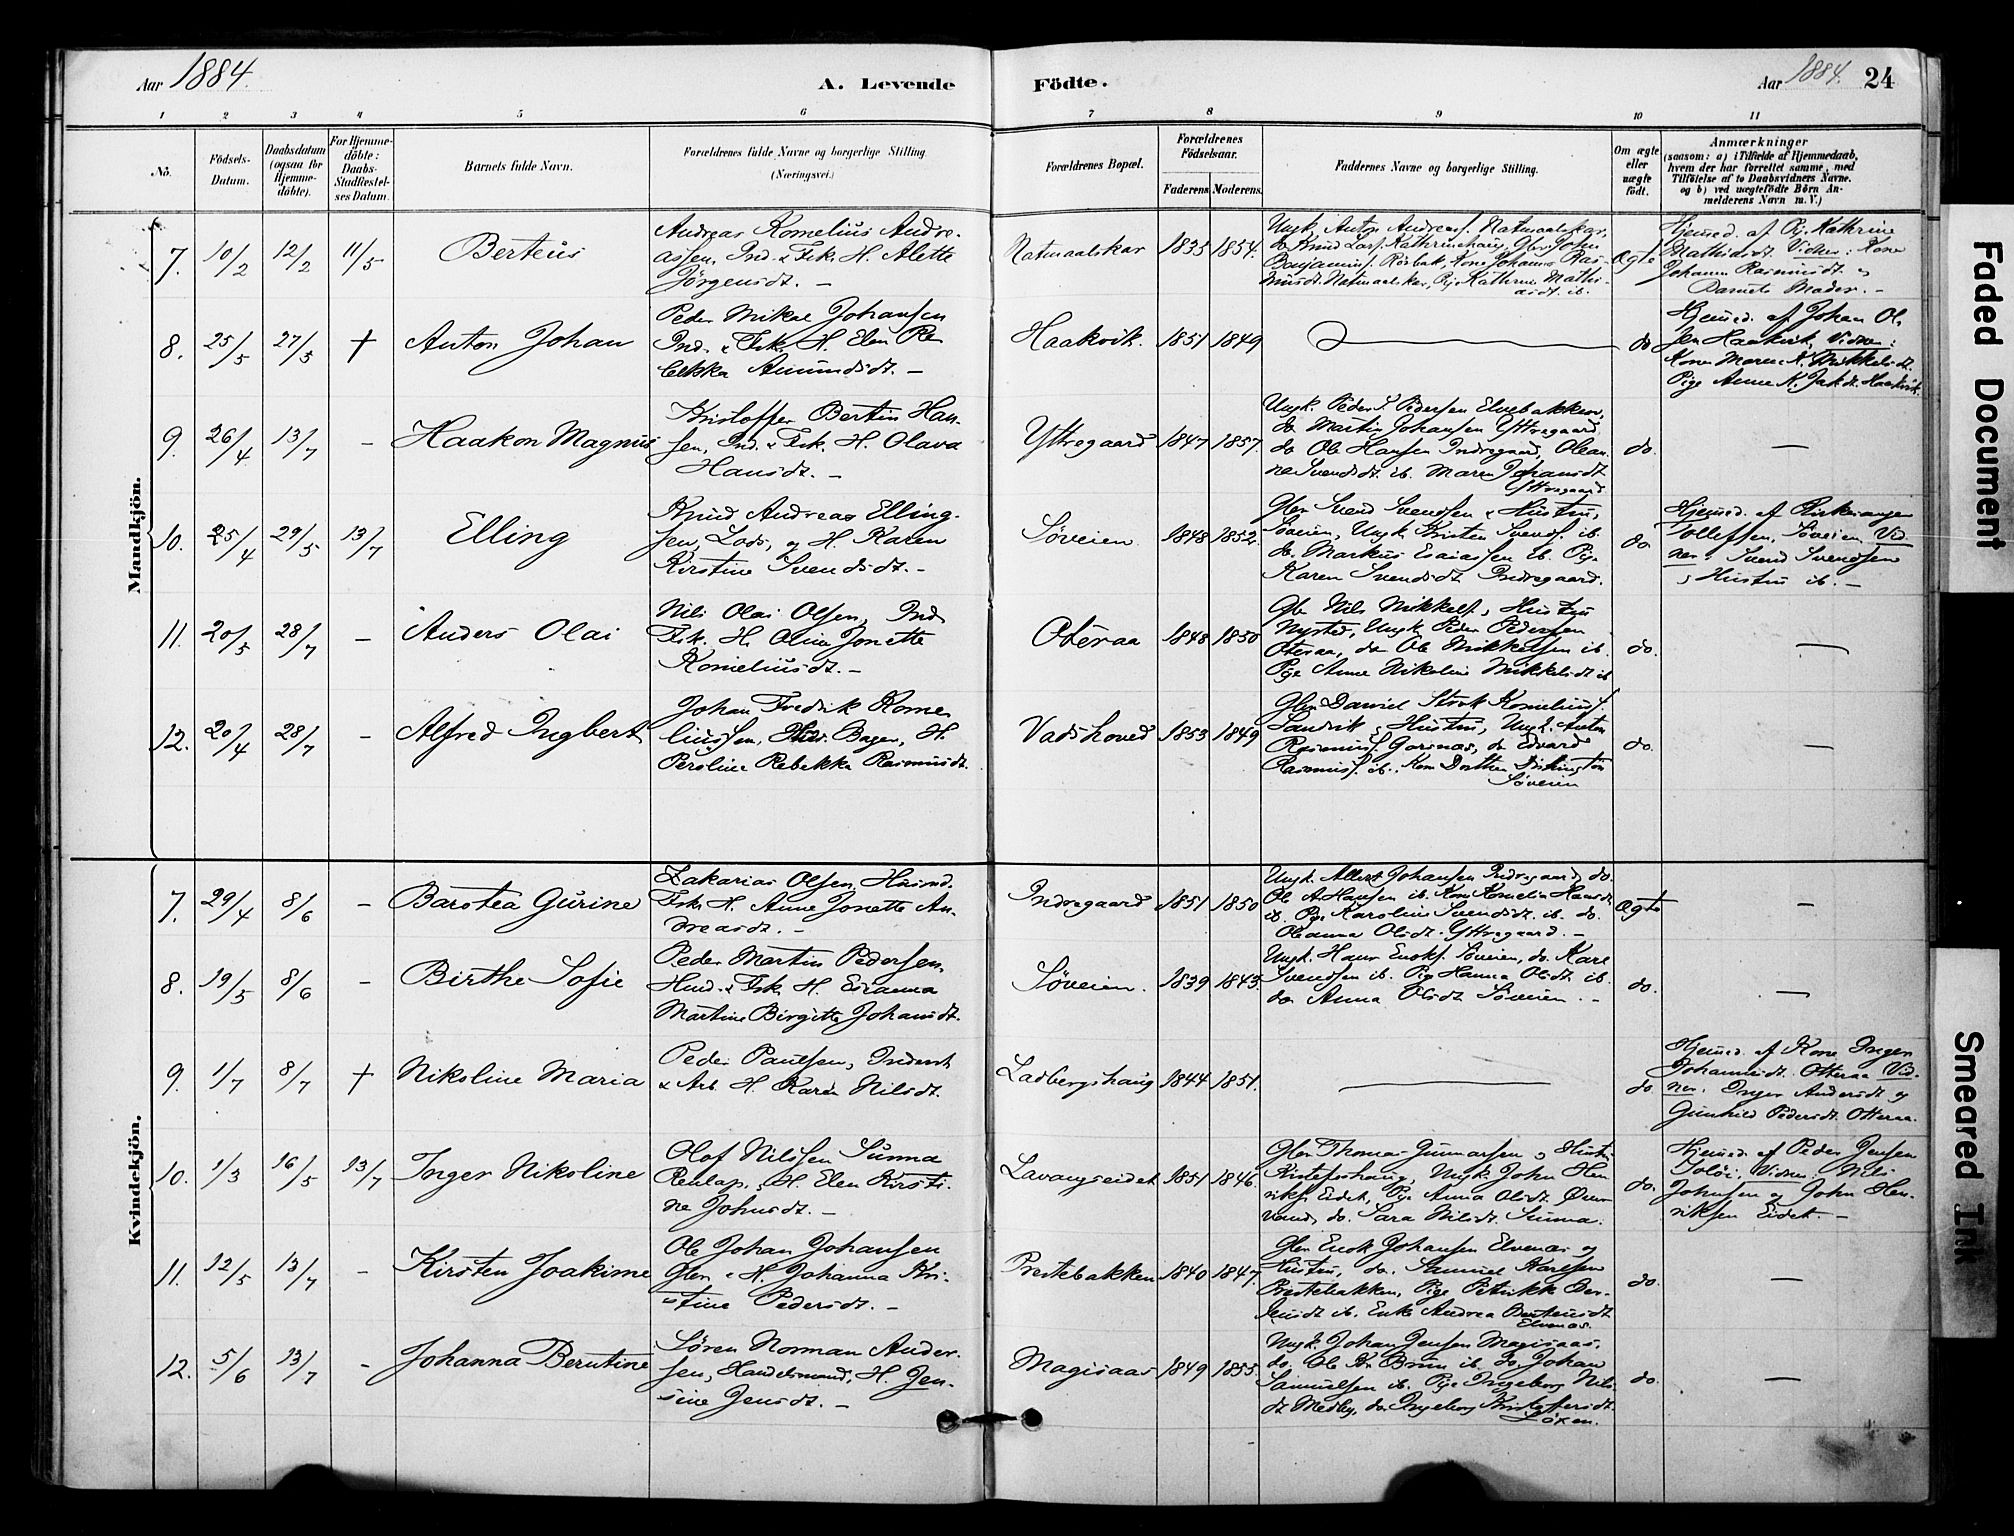 Aar 1884.
A. Levende Födte.
Aar 1884. 24
1 2 3 4 5 6 7 8 9 10 11
No.
Födsels-Datum.
Daabsdatum (ogsaa for Hjemmedöbte).
For Hjemmedöbte: Daabs-Stadfestelses Datum.
Barnets fulde Navn.
Forældrenes fulde Navne og borgerlige Stilling.
(Næringsvei.)
Forældrenes Bopæl.
Forældrenes Födselsaar.
Faderens Moderens.
Faddernes Navne og borgerlige Stilling.
Om ægte eller uægte født.
Anmærkninger
(saasom: a) i Tilfælde af Hjemmedaab, hvem der har forrettet samme, med Tilföielse af to Daabsvidners Navne. og b) ved uægtefödte Börn Anmelderens Navn m. V.)
Mandkjön.
7. 10/2 12/2 11/5 Berteus
Andreas Kornelius Andre-
assen, Ind. & Fsk. H. Alette
Jörgensdt. –
Natmaalskar 1835 1854.
Ungk. Anton Andreas. Natmaalskar,
do Knud Lars. Kathrinehaug, Gbr. John
Benjamins. Kone Johanna Ras-
musdt. Natmaalskar, Pige Kathrine Mathi-
asdt. ib.
ægte
Hjemmed. af Pig. Kathrine
Mathiasdt. Vidner: Kone
Johanna Rasmusdt. og
Barnets Moder. –
8. 25/5 27/5 + Anton Johan
Peder Mikal Johansen
Ind. & Fsk. H. Elen Re-
bekka Amundsdt. –
Haakvik. 1851 1849
do
Hjemmed. af Johan Ol-
sen Haakvik, Vidner:
Kone Maren K. Mikkelsdt.
Pige Anne K. Jakdt. Haakvik.
9. 26/4 13/7 – Haakon Magnus
Kristoffer Bertin Han-
sen, Ind. & Fsk. H. Olava
Hansdt. –
Yttregaard 1847 1857.
Ungk. Peder S. Pedersen Elvebakken,
do Martin Johansen Yttregaard
do Ole Hansen Indregaard, Olean-
na Svendsdt. ib. Maren Johansdt.
Yttregaard
do. –
10. 25/4 29/5 13/7 Elling
Knud Andreas Elling-
sen, Lods, og H. Karen
Kirstine Svendsdt. –
Söveien. 1848 1852.
Gbr. Svend Svendsen & Hustru,
Söveien, Ungk. Kristen Svends. ib.
do. Markus Esaiassen ib. Pige
Karen Svendsdt. Indregaard.
do.
Hjemmed. af Kirkesanger
Tollefsen, Söveien, Vid-
ner: Svend Svendsen
& Hustru ib. –
11. 20/5 28/7 – Anders Olai
Nils Olai Olsen, Ind.
Fsk. H. Oline Jonette
Korneliusdt. –
Oteraa 1848 1850
Gbr. Nils Mikkels. & Hustru
Nysted, Ungk. Peder Pedersen
Oteraa, do Ole Mikkelsen ib.
Pige Anne Nikoline Mikkelsdt. ib
do. –
12. 20/4 28/7 – Alfred Ingbert
Johan Fredrik Korne-
liussen, Bager, H.
Peroline Rebekka Rasmusdt.
Vadshoved 1853 1849
Gbr. Daniel Strok Kornelius.
Sandvik & Hustru, Ungk. Anton
Rasmus. Garsnæs, do Edvard
Rasmus. ib., Kone Dorthea
Söveien
do. –
Kvindekjön.
7. 29/4 8/6 – Barotea Gurine
Zakarias Olsen, Husmd.
Fsk. H. Anne Jonette An-
dreasdt. –
Indregaard 1851 1850
Ungk. Albert Johansen Indregaard, do.
Ole A. Hansen ib. Kone Kornelia Hansdt.
ib. Pige Karoline Svendsdt. ib. do.
Oleanna Olsdt. Yttregaard. –
ægte –
8. 19/5 8/6 – Birthe Sofie
Peder Martin Pedersen,
Husd. & Fsk. H. Esianna
Martine Birgitte Johansdt.
Söveien. 1839 1843.
Ungk. Hans Enoks. Söveien, do. Karl
Svendsen ib. Pige Hanna Olsdt. ib.
do Anna Olsdt. Söveien. –
do. –
9. 1/7 8/7 + Nikoline Maria
Peder Paulsen, Inderst
& Arb. H. Karen Nilsdt.
Ladbergshaug 1844 1851.
do.
Hjemmed. af Kone Inger
Johannesdt. Otteraa Vid-
ner: Inger Andersdt. og
Gunhild Pedersdt. Otteraa.
10. 1/3 16/5 13/7 Inger Nikoline
Olof Nilssen Sunna
Renlap. & H. Elen Kirsti-
ne Johnsdt. –
Lavangseidet 1851 1846.
Gbr. Thomas Gunnarsen & Hustr.
Kristofershaug, Ungk. John Hen-
riks. Eidet, Pige Anna Olsdt.
vand, do. Sara Nilsdt. Sunna.
do.
Hjemmed. af Peder Jensen
Soløi, Vidner: Nils
Johnsen og John Hen-
riksen Eidet. –
11. 12/5 13/7 – Kirsten Joakime
Ole Johan Johansen
Gbr. & H. Johanna Kri-
stine Pedersdt. –
Prestebakken 1840 1847.
Gbr. Enok Johansen Elvenæs og
Hustru, do. Samuel Karlsen
Prestebakken, Pige Petrikke Ber-
teusdt. ib. Enke Andrea Berteusdt.
Elvenæs.
do. –
12. 5/6 13/7 – Johanna Berntine
Sören Norman Ander-
sen, Handelsmand, H. Jen-
sine Jensdt. –
Magisaas 1849 1855.
Ungk. Johan Jensen Magisaas,
do. Ole Kr. Bruun ib. do. Johan
Samuelsen ib. Pige Ingeborg Nils-
dt. Medby, do. Ingeborg Kristoffersdt.
Löxen.
do. –
Faded Document
Smeared Ink